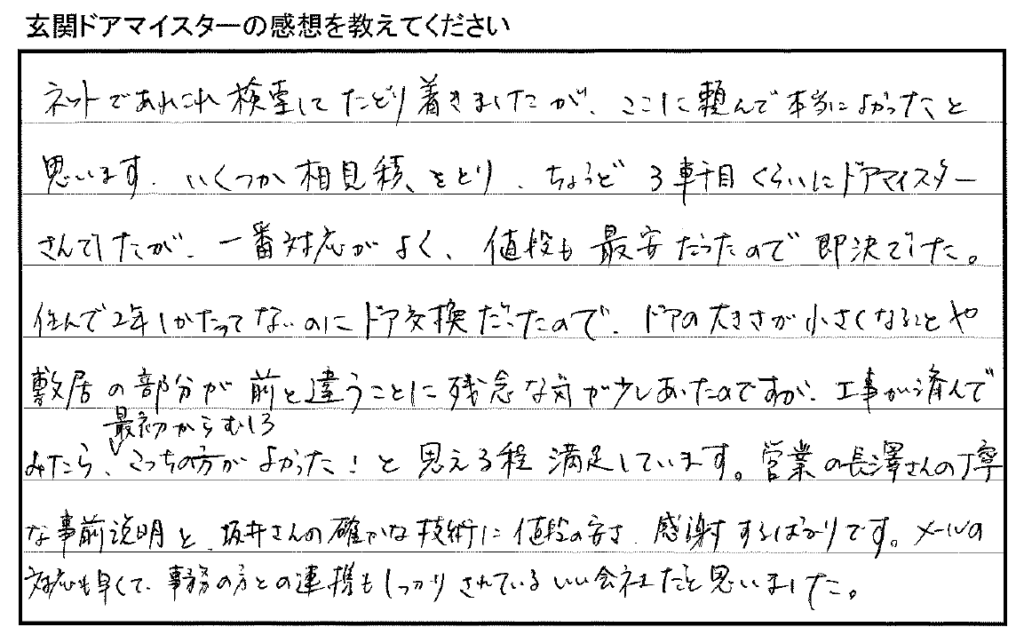 玄関ドアマイスターの感想を教えてください
ネットであれこれ検索してたどり着きましたが、ここに頼んで本当によかったと
思います。いくつか相見積をとり、ちょうど3軒目くらいにドアマイスター
さんでしたが、一番対応がよく、値段も最安だったので即決でした。
住んで2年しかたってないのにドア交換だったので、ドアの大きさが小さくなることや
敷居の部分が前と違うことに残念な気が少しあったのですが、工事が済んで
最初からむしろ
みたら、こっちの方がよかった!と思える程満足しています。営業の長澤さんの丁寧
な事前説明と、坂井さんの確かな技術に値段の安さ、感謝するばかりです。メールの
対応も早くて、事務の方との連携もしっかりされているいい会社だと思いました。